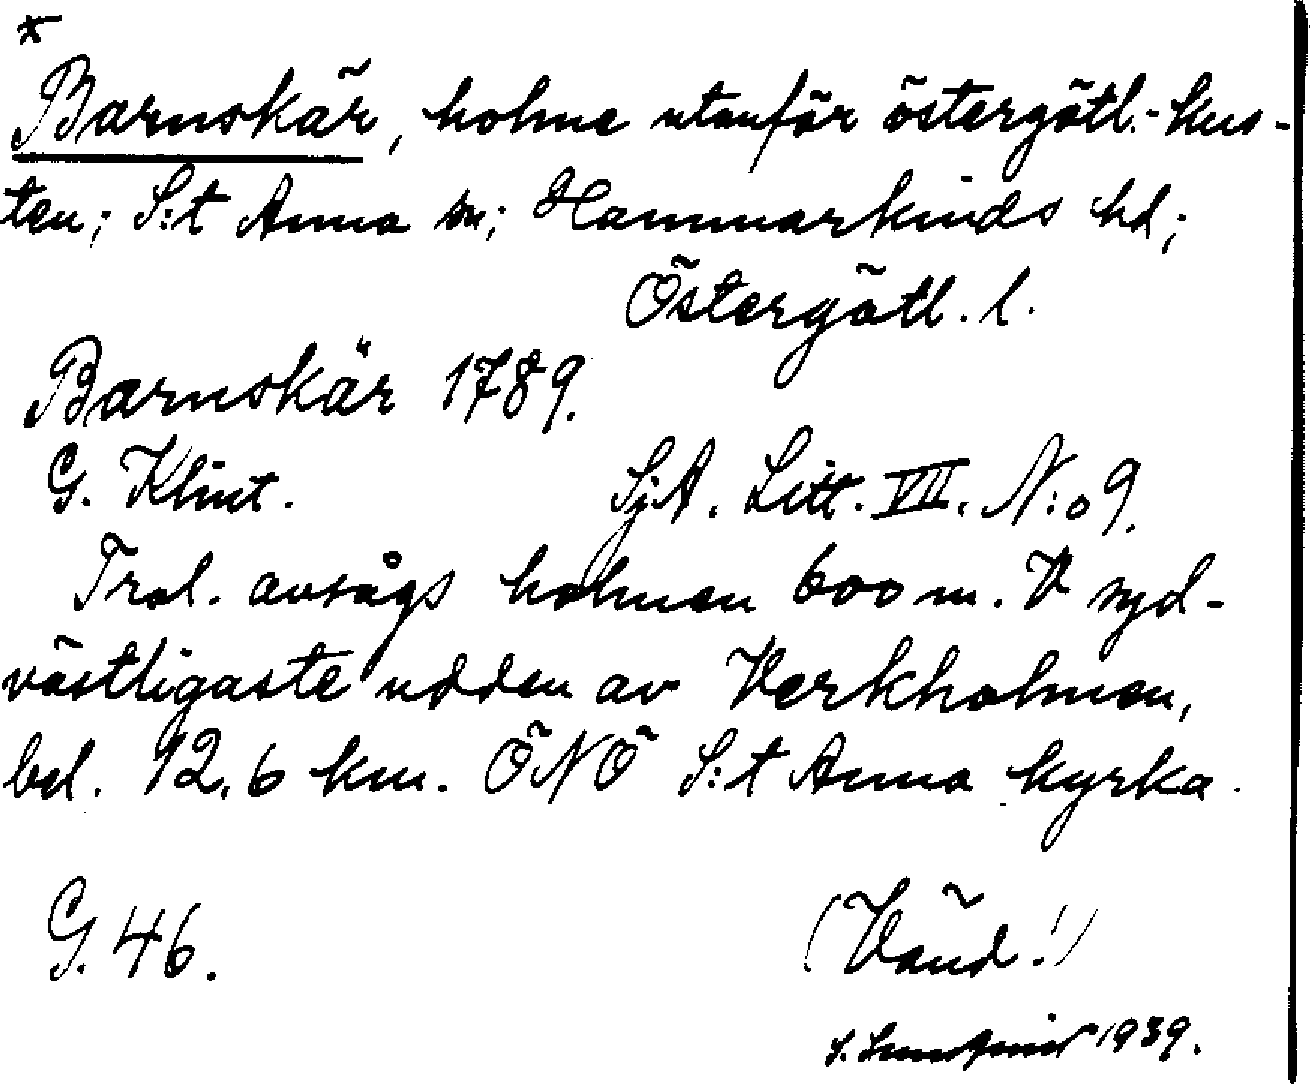 x
Barnskär, holme utanför östergötl.-kus-
ten; S:t Anna sn; Hammarkinds hd;
Östergötl. l.
Barnskär 1789.
G. Klint. SjA. Litt. VII. N:o 9.
Trol. avsågs holmen 600 m. V syd-
västligaste udden av Verkholmen,
bel. 12,6 km. ÖNÖ S:t Anna kyrka.
G. 46. (Vänd!)
1939.